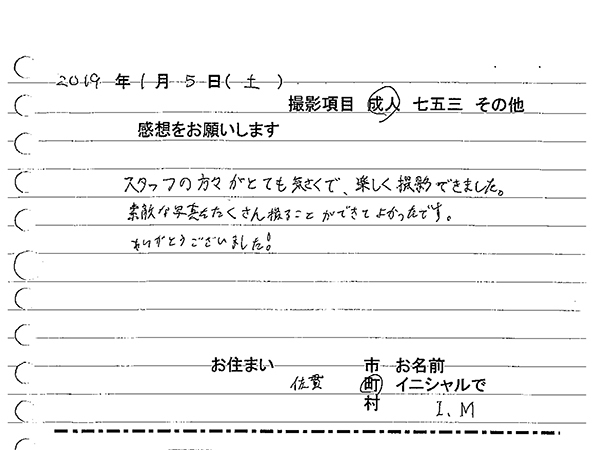 2019 年 1 月 5 日( 土 )
撮影項目 成人 七五三 その他
感想をお願いします
スタッフの方々がとても気さくで、楽しく撮影できました。
素敵な写真をたくさん撮ることができてよかったです。
ありがとうございました!
お住まい 市 お名前
佐貫 町 イニシャルで
村 I.M